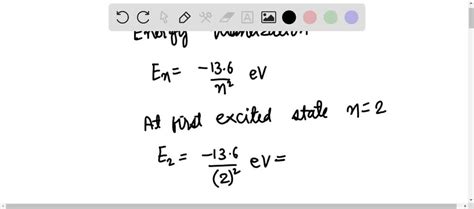 Energy
Eₙ = -13.6/n² eV
At first excited state n=2
E₂ = -13.6/(2)² eV =